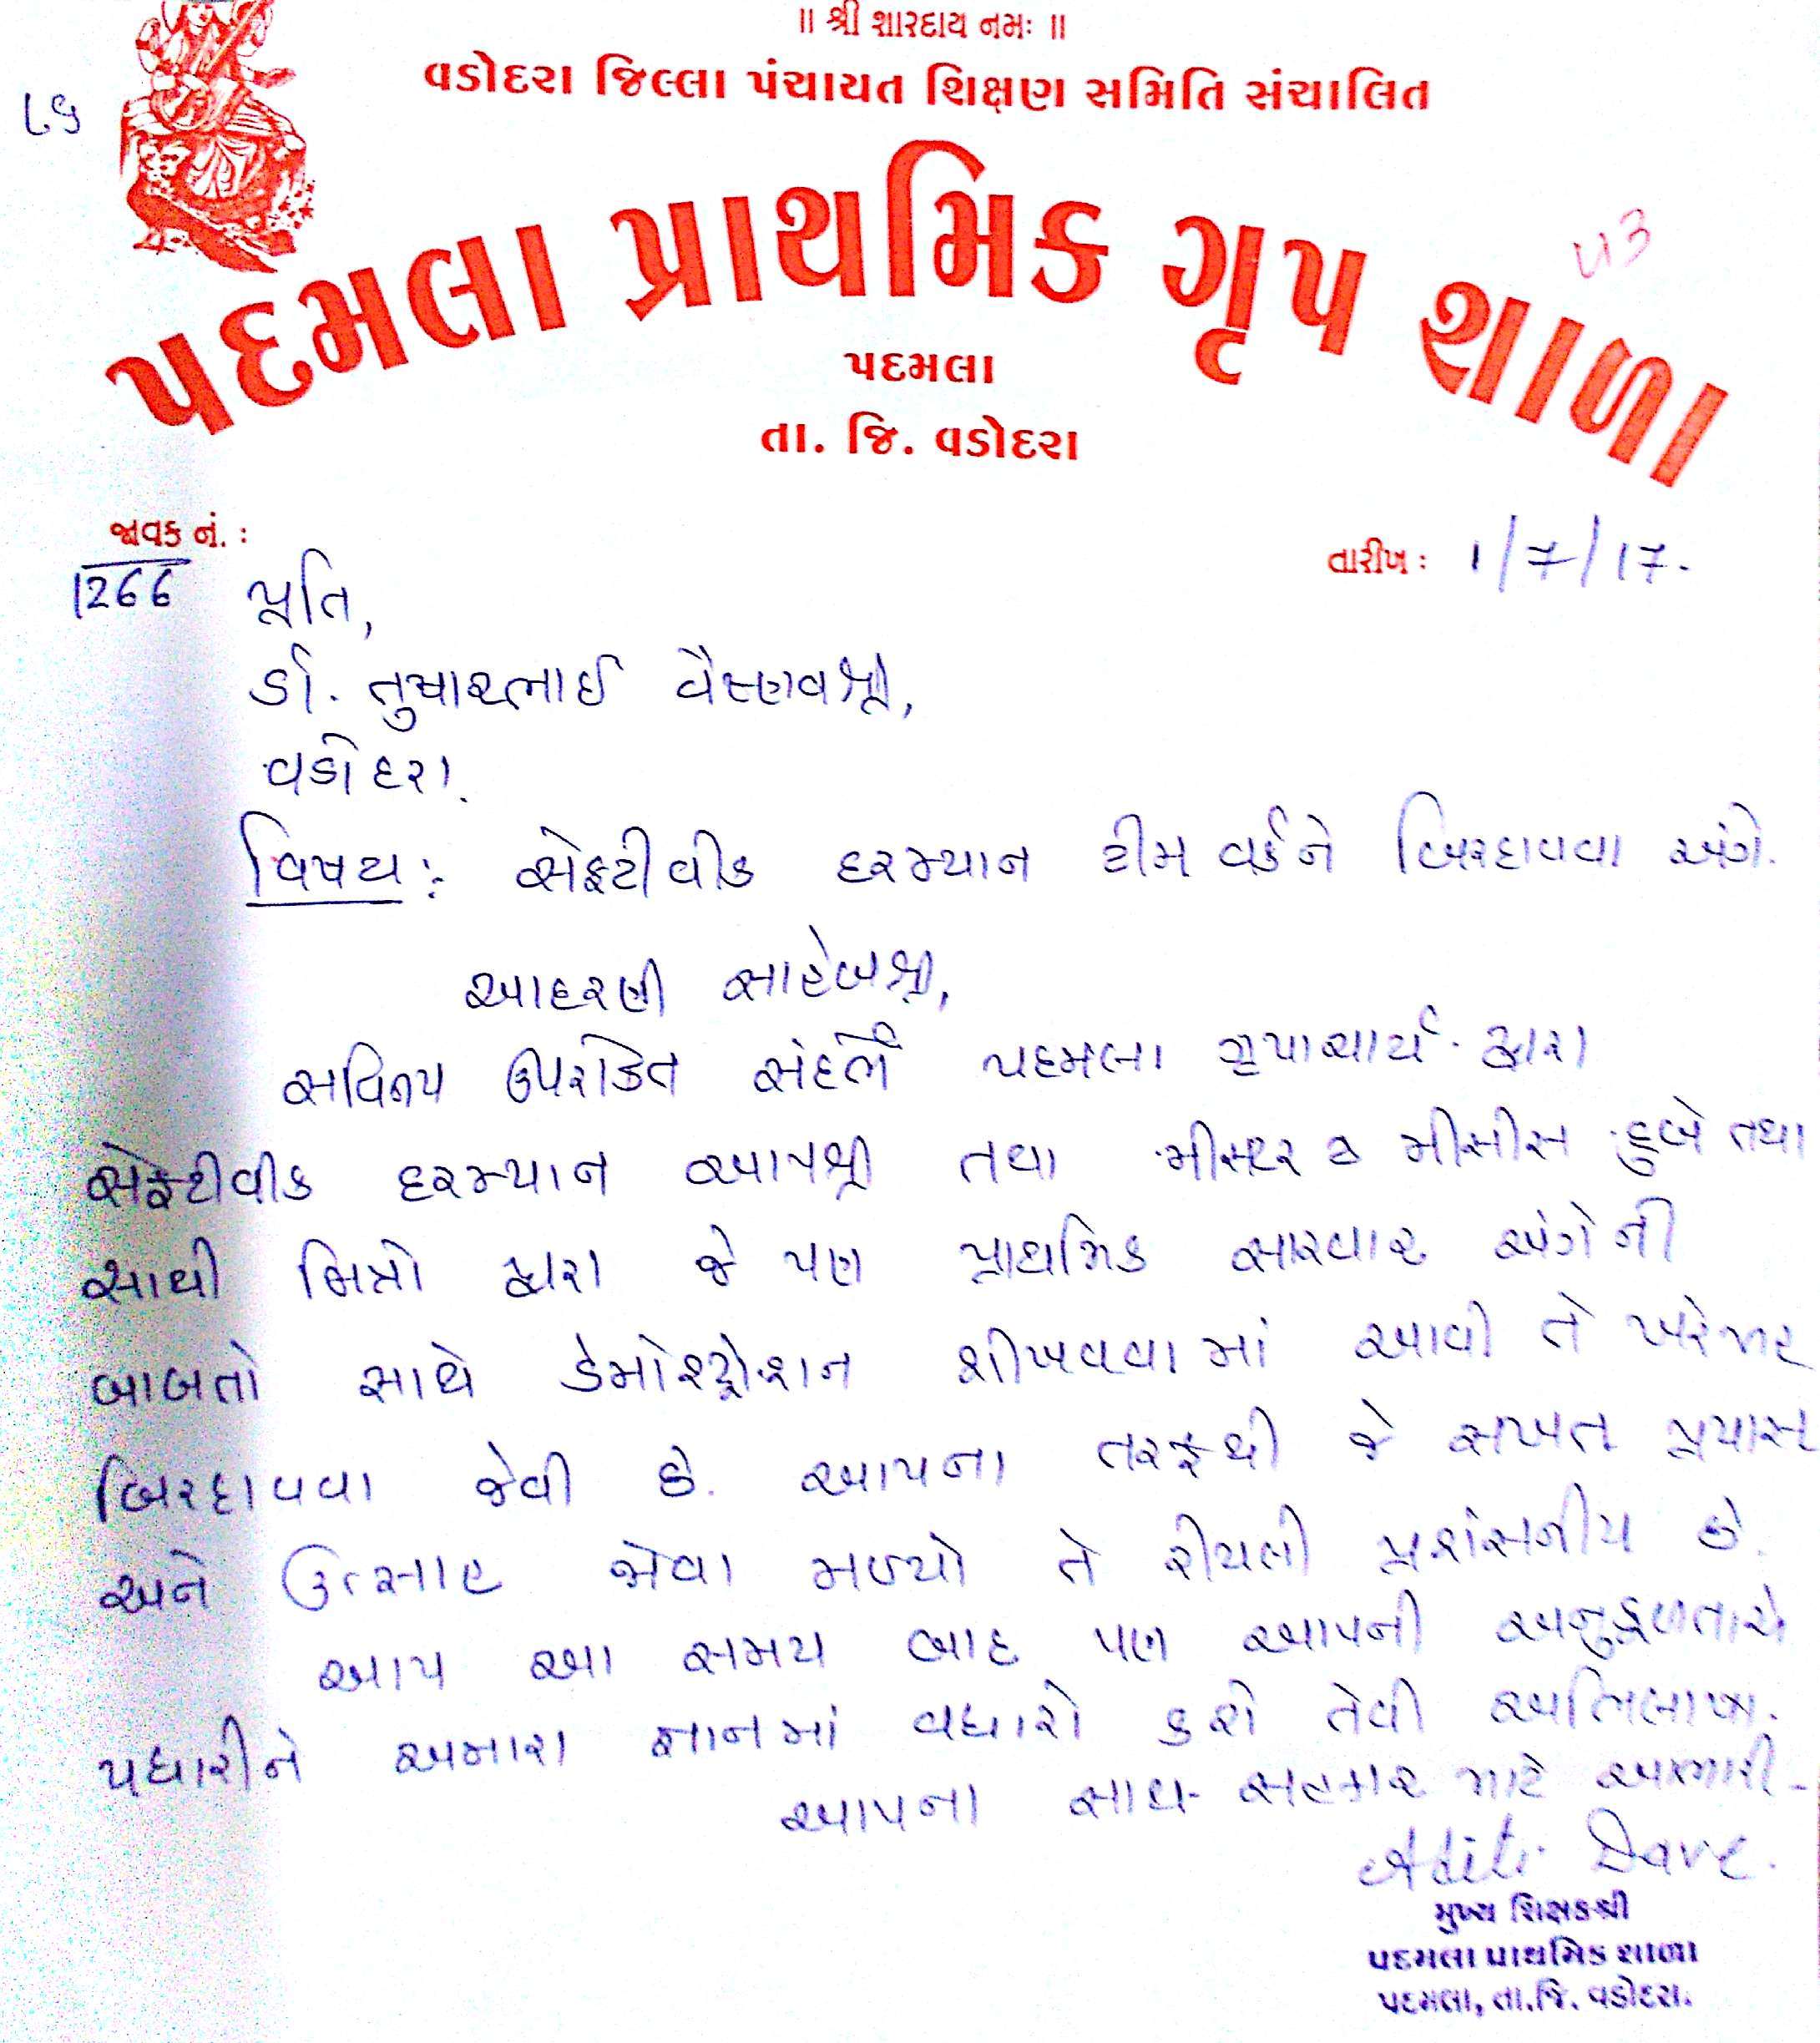 ॥ શ્રી શારદાય નમઃ ॥
વડોદરા જિલ્લા પંચાયત શિક્ષણ સમિતિ સંચાલિત
૫૩
પદમલા પ્રાથમિક ગૃપ શાળા
પદમલા
તા. જિ. વડોદરા
જાવક નં. :
તારીખ : 1/7/17.
1266
પ્રતિ,
ડૉ. તુષારભાઈ વૈષ્ણવશ્રી,
વડોદરા.
વિષય : સેફટીવીક દરમ્યાન ટીમ વર્કને બિરદાવવા અંગે.
આદરણી સાહેબશ્રી,
સવિનય ઉપરોક્ત સંદર્ભે પદમલા ગૃપાચાર્ય દ્વારા
સેફટીવીક દરમ્યાન આપશ્રી તથા મીસ્ટર & મીસીસ દુબે તથા
સાથી મિત્રો દ્વારા જે પણ પ્રાથમિક સારવાર અંગેની
બાબતો સાથે ડેમોસ્ટ્રેશન શીખવવામાં આવી તે ખરેખર
બિરદાવવા જેવી છે. આપના તરફથી જે સખત પ્રયાસ
અને ઉત્સાહ જોવા મળ્યો તે રીયલી પ્રશંસનીય છે.
આપ આ સમય બાદ પણ આપની અનુકૂળતાએ
પધારીને અમારા જ્ઞાનમાં વધારો કરશો તેવી અભિલાષા.
આપના સાથ-સહકાર માટે આભારી -
Aditi Dave.
મુખ્ય શિક્ષકશ્રી
પદમલા પ્રાથમિક શાળા
પદમલા, તા.જિ. વડોદરા.